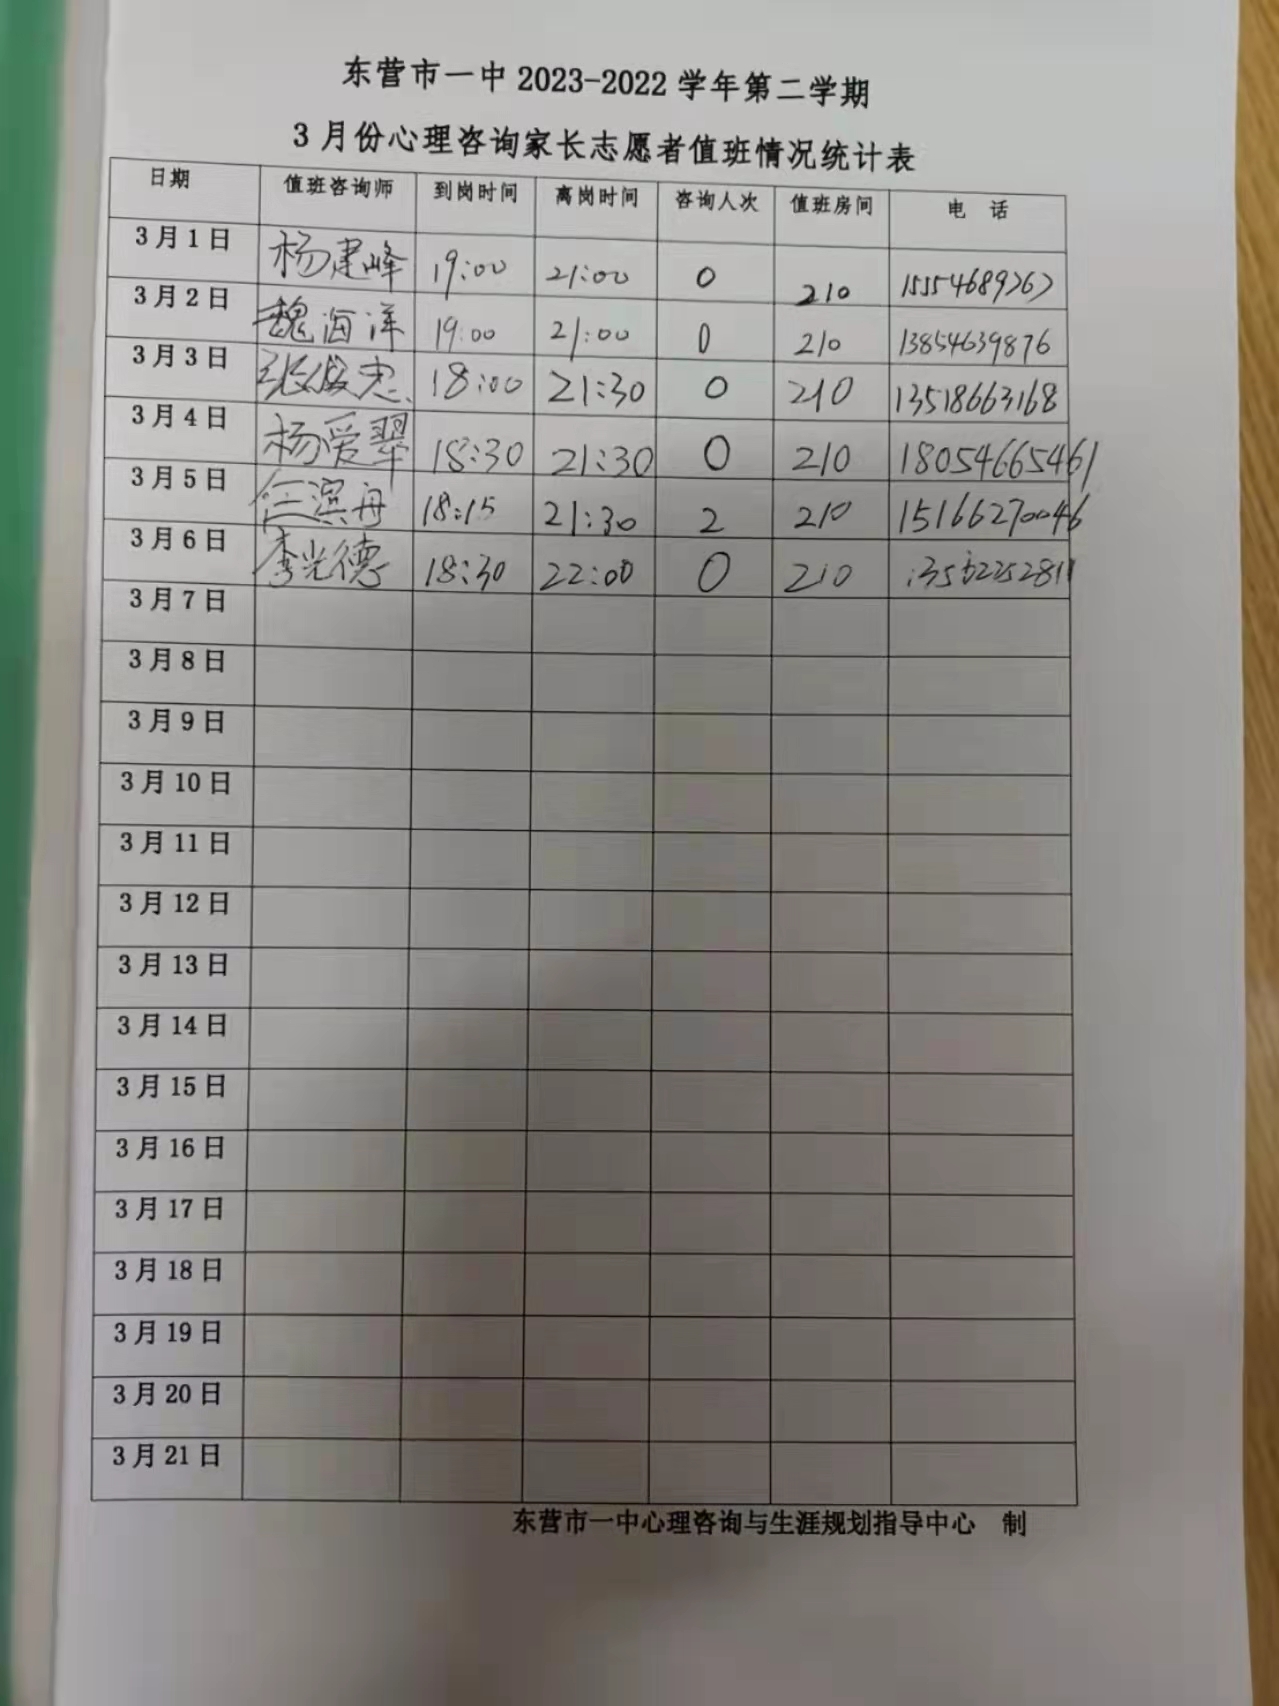 东营市一中 2023-2022 学年第二学期
3 月份心理咨询家长志愿者值班情况统计表
日期 值班咨询师 到岗时间 离岗时间 咨询人次 值班房间 电 话
3 月 1 日 杨建峰 19:00 21:00 0 210
3 月 2 日 魏海洋 19:00 21:00 0 210 13854639876
3 月 3 日 张俊忠 18:00 21:30 0 210 13518663168
3 月 4 日 杨爱翠 18:30 21:30 0 210 18054665461
3 月 5 日 任滨舟 18:15 21:30 2 210 15166270046
3 月 6 日 李光德 18:30 22:00 0 210
3 月 7 日
3 月 8 日
3 月 9 日
3 月 10 日
3 月 11 日
3 月 12 日
3 月 13 日
3 月 14 日
3 月 15 日
3 月 16 日
3 月 17 日
3 月 18 日
3 月 19 日
3 月 20 日
3 月 21 日
东营市一中心理咨询与生涯规划指导中心 制